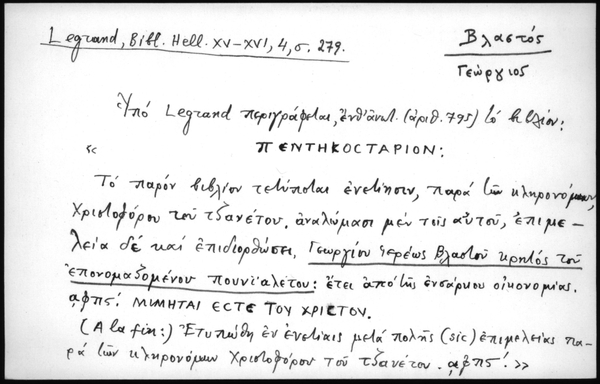 Legrand, Bibl. Hell. XV–XVI, 4, σ. 279.
Βλαστός
Γεώργιος
Ὑπό Legrand περιγράφεται, ἐνθ' ἀνωτ. (ἀριθ. 795) τό βιβλίον:
« ΠΕΝΤΗΚΟCΤΑΡΙΟΝ:
Τό παρόν βιβλίον τετύπεται ἐνετίησιν, παρά τῶν κληρονόμων,
Χριστοφόρου τοῦ τζανέτου. ἀναλώμασι μέν τοῖς αὐτοῦ, ἐπιμε-
λεία δέ καί ἐπιδιορθώσει, Γεωργίου ἱερέως Βλαστοῦ κρητός τοῦ
ἐπονομαζομένου πουνϊαλέτου: ἔτει ἀπό τῆς ἐνσάρκου οἰκονομίας.
͵αφπς΄. ΜΙΜΗΤΑΙ ΕCΤΕ ΤΟΥ ΧΡΙCΤΟΥ.
(A la fin:) Ἐτυπώθη ἐν ἐνετίαις μετά πολῆς (sic) ἐπιμελείας πα-
ρά τῶν κληρονόμων Χριστοφόρου τοῦ τζανέτου. ͵αφπς΄. »